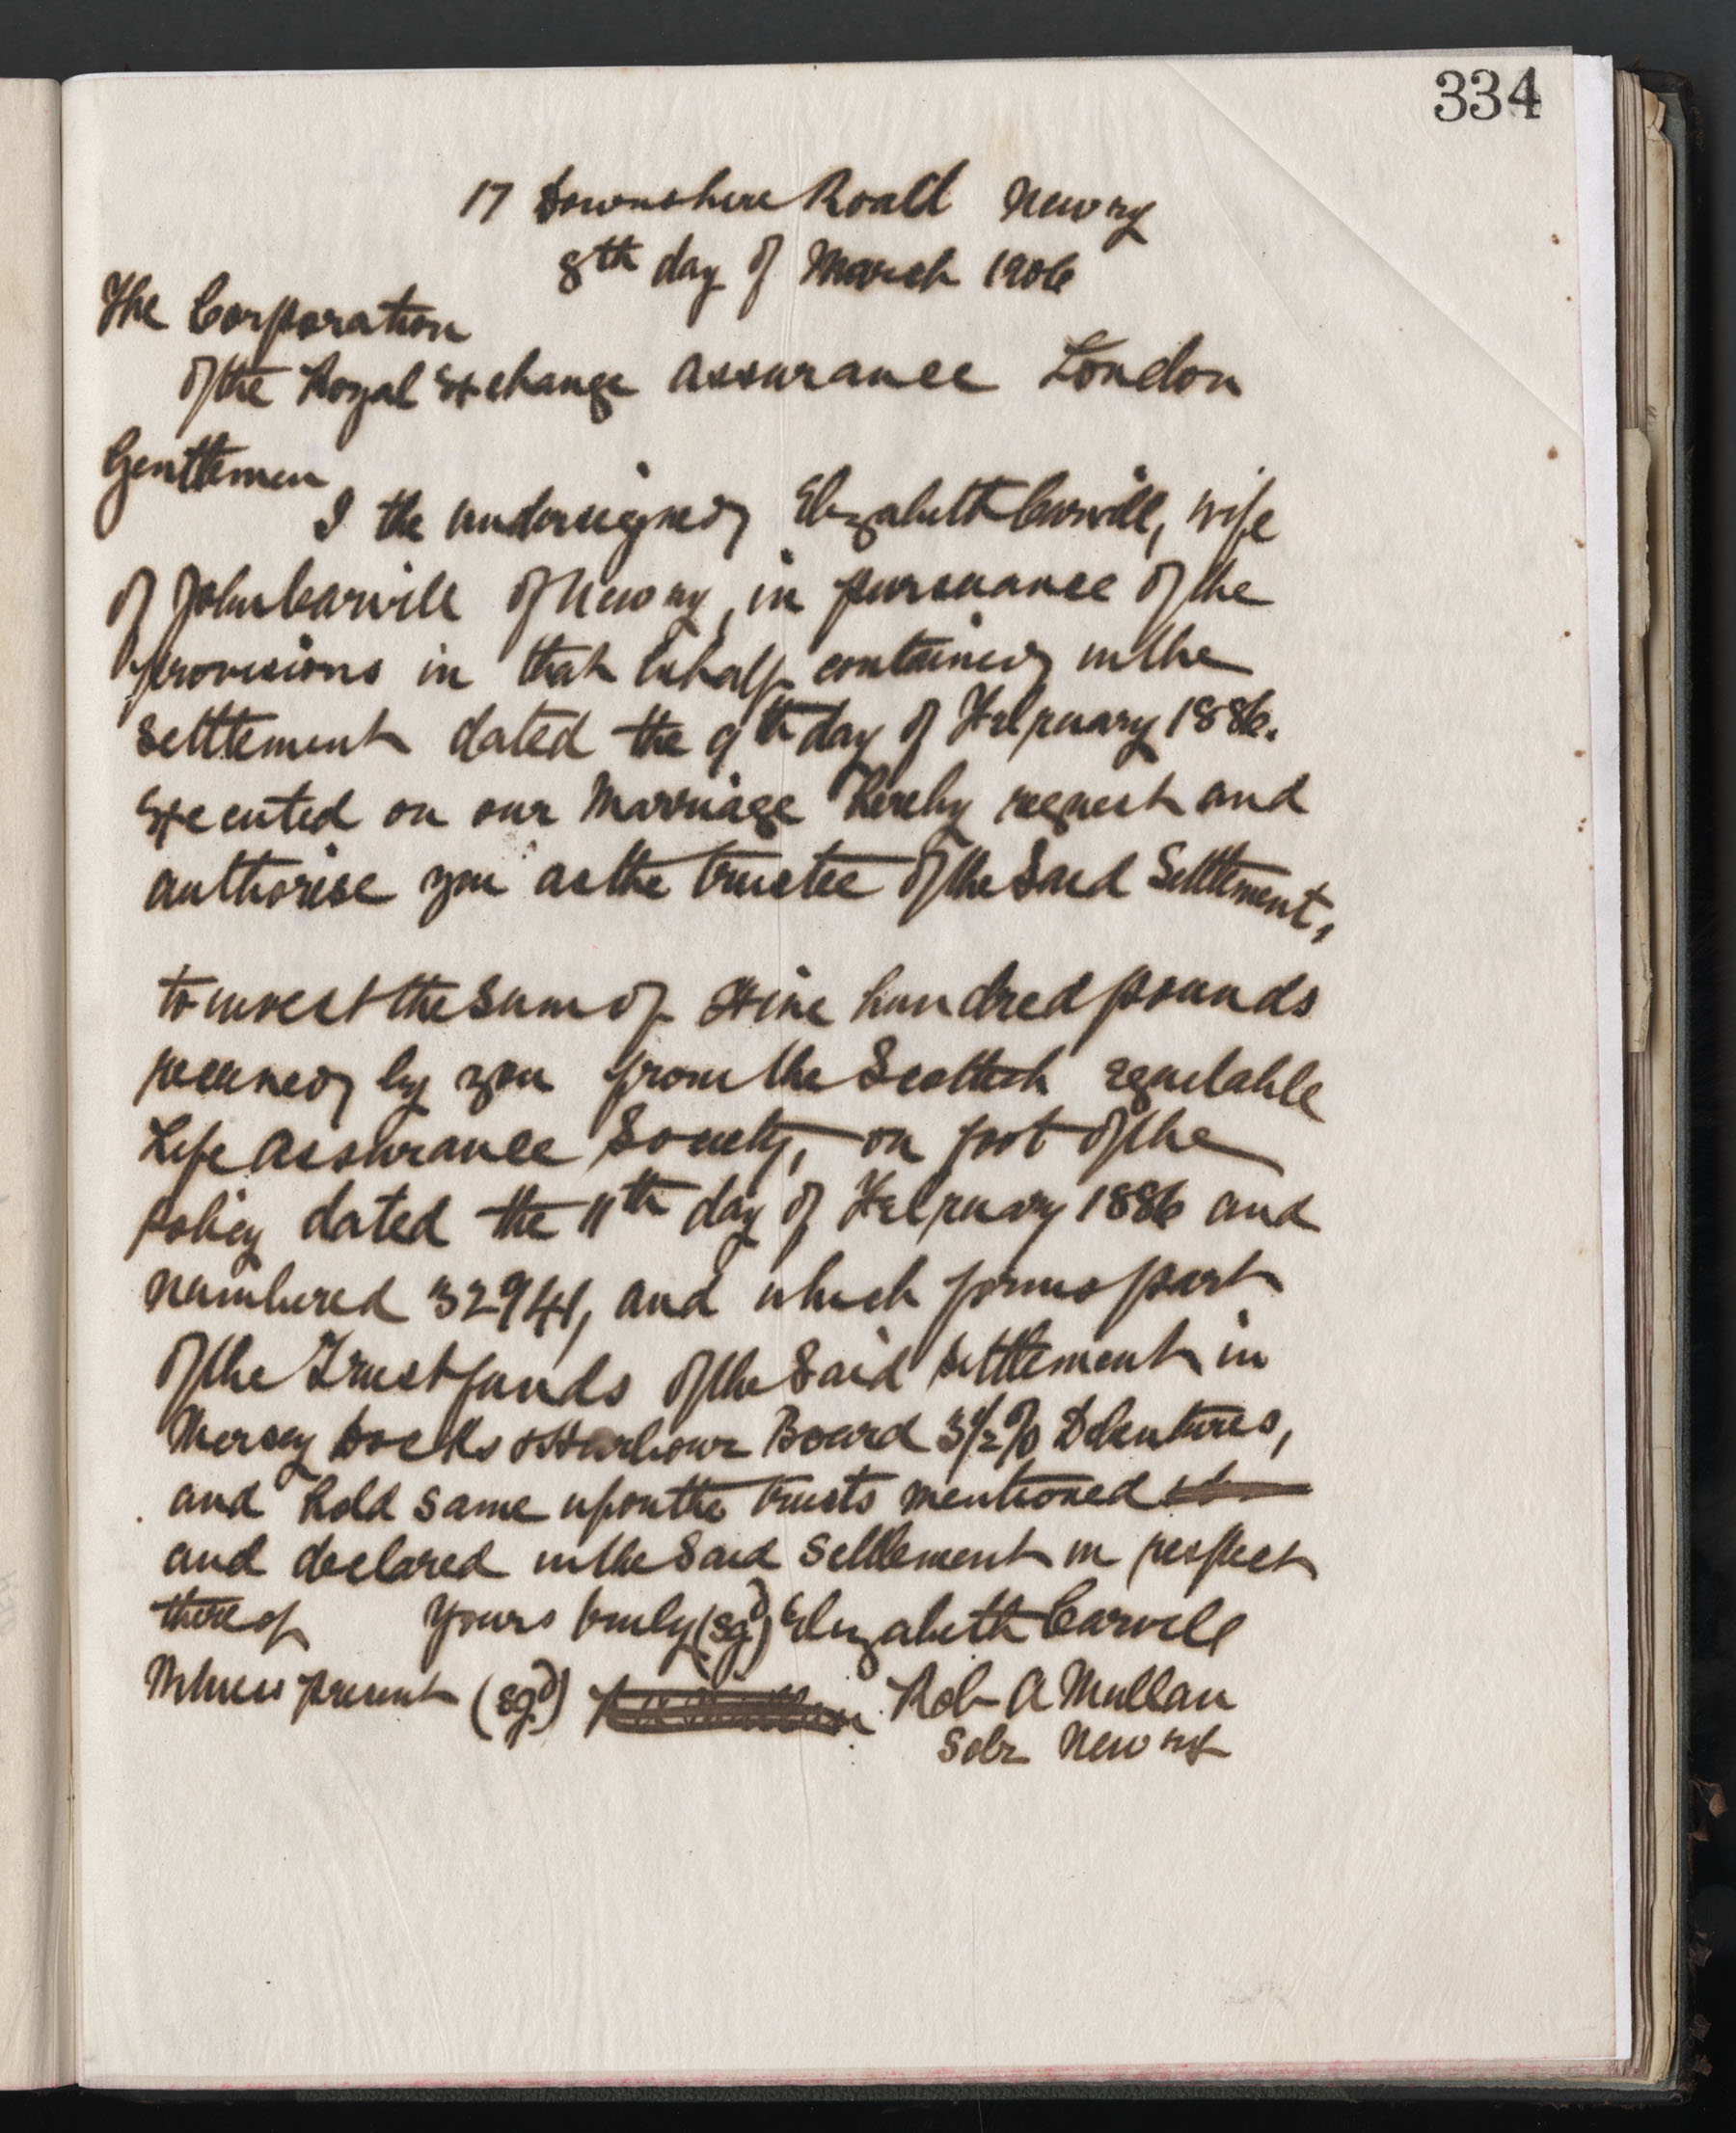 334
17 Downshire Road Newry
8th day of March 1906
The Corporation
of the Royal Exchange Assurance London
Gentlemen,
I the undersigned Elizabeth Carvill, wife
of John Carvill of Newry, in pursuance of the
provisions in that behalf contained in the
Settlement dated the 9th day of February 1886.
Executed on our Marriage hereby request and
authorise you as the trustee of the Said Settlement,
to invest the Sum of hundred pounds
received by you from the Scottish equitable
Life Assurance Society, on foot of the
policy dated the 11th day of February 1886 and
numbered 32941, and which forms part
of the Trust funds of the Said Settlement in
Mersey Docks & Harbour Board 3½% Debentures,
and hold same upon the trusts mentioned
and declared in the Said Settlement in respect
thereof Yours truly (sgd) Elizabeth Carvill
Witness present (sgd) Rob A Mullan
Solr Newry